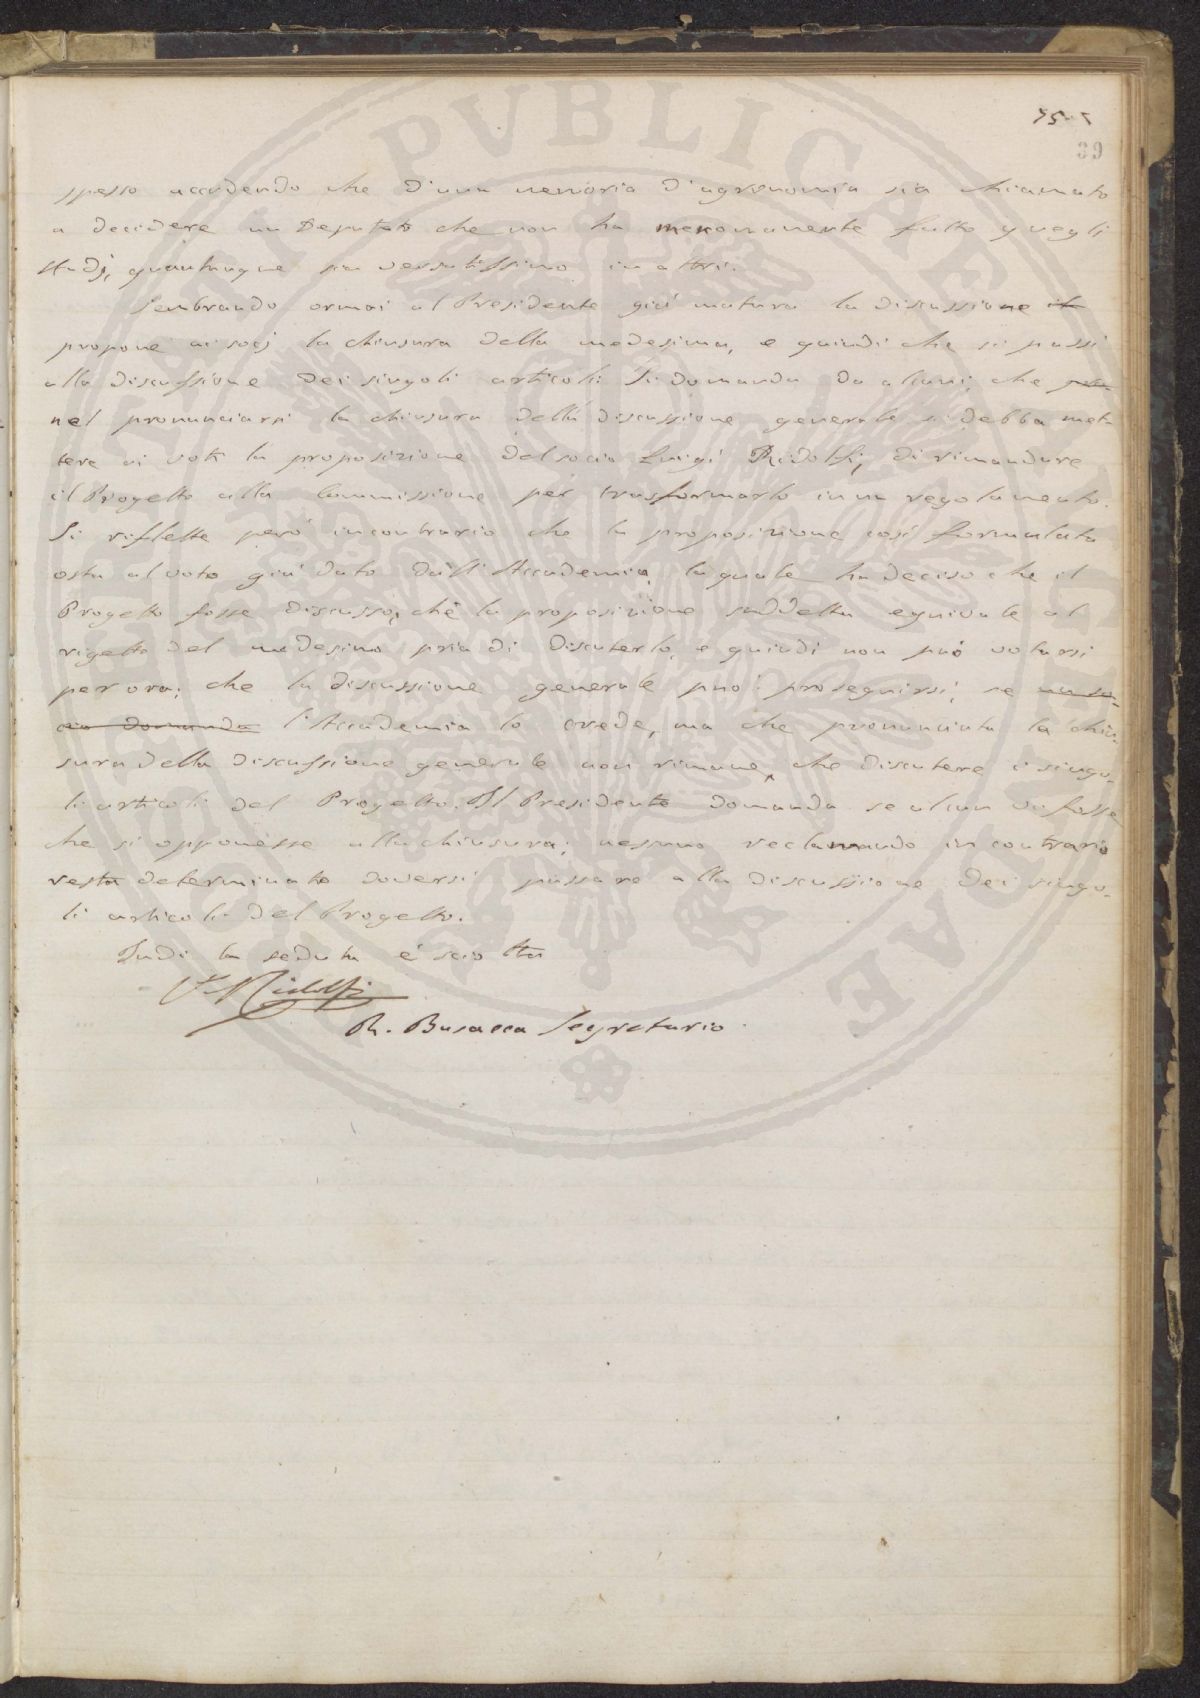 39
spesso accadendo che d'una memoria d'agronomia sia chiamato
a decidere un Deputato che non ha menomamente fatto quegli
studj, quantunque sia versatissimo in altri.
Sembrando ormai al Presidente già matura la discussione il
propone ai socj la chiusura della medesima, e quindi che si passi
alla discussione dei singoli articoli. Si domanda da alcuni, che
nel pronunciarsi la chiusura della discussione generale si debba met-
tere ai voti la proposizione del socio Luigi Ridolfi, di rimandare
il Progetto alla Commissione per trasformarlo in un regolamento.
Si riflette però incontrario che la proposizione così formulata
osta al voto già dato dall'Accademia, la quale ha deciso che il
Progetto fosse discusso; che la proposizione suddetta equivale al
rigetto del medesimo pria di discuterlo, e quindi non può votarsi
per ora; che la discussione generale può proseguirsi, se un so-
cio domanda l'Accademia lo crede, ma che pronunciata la chiu-
sura della discussione generale non rimane, che discutere i singo-
li articoli del Progetto. Il Presidente domanda se alcun vi fosse
che si opponesse alla chiusura; nessuno reclamando in contrario
resta determinato doversi passare alla discussione dei singo-
li articoli del Progetto.
Indi la seduta è sciolta
Ridolfi
R. Busacca Segretario.
PVBLICAE